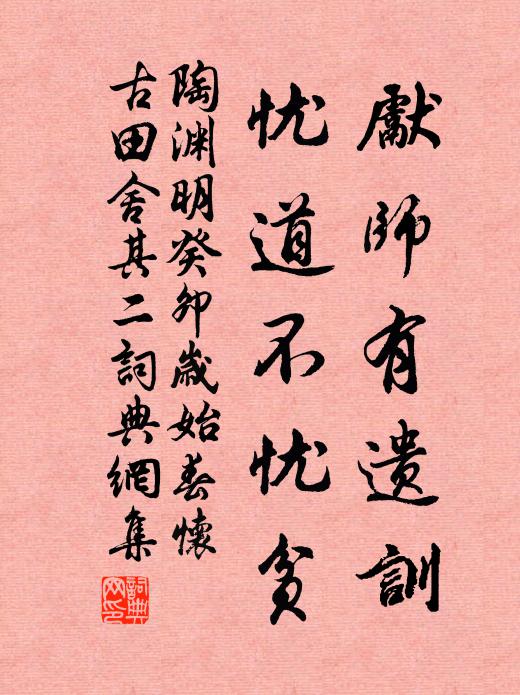 獻師有遺訓
忧道不忧貧
陶渊明癸卯歲始春懷
古田舍其二詞典網集
詞典網印